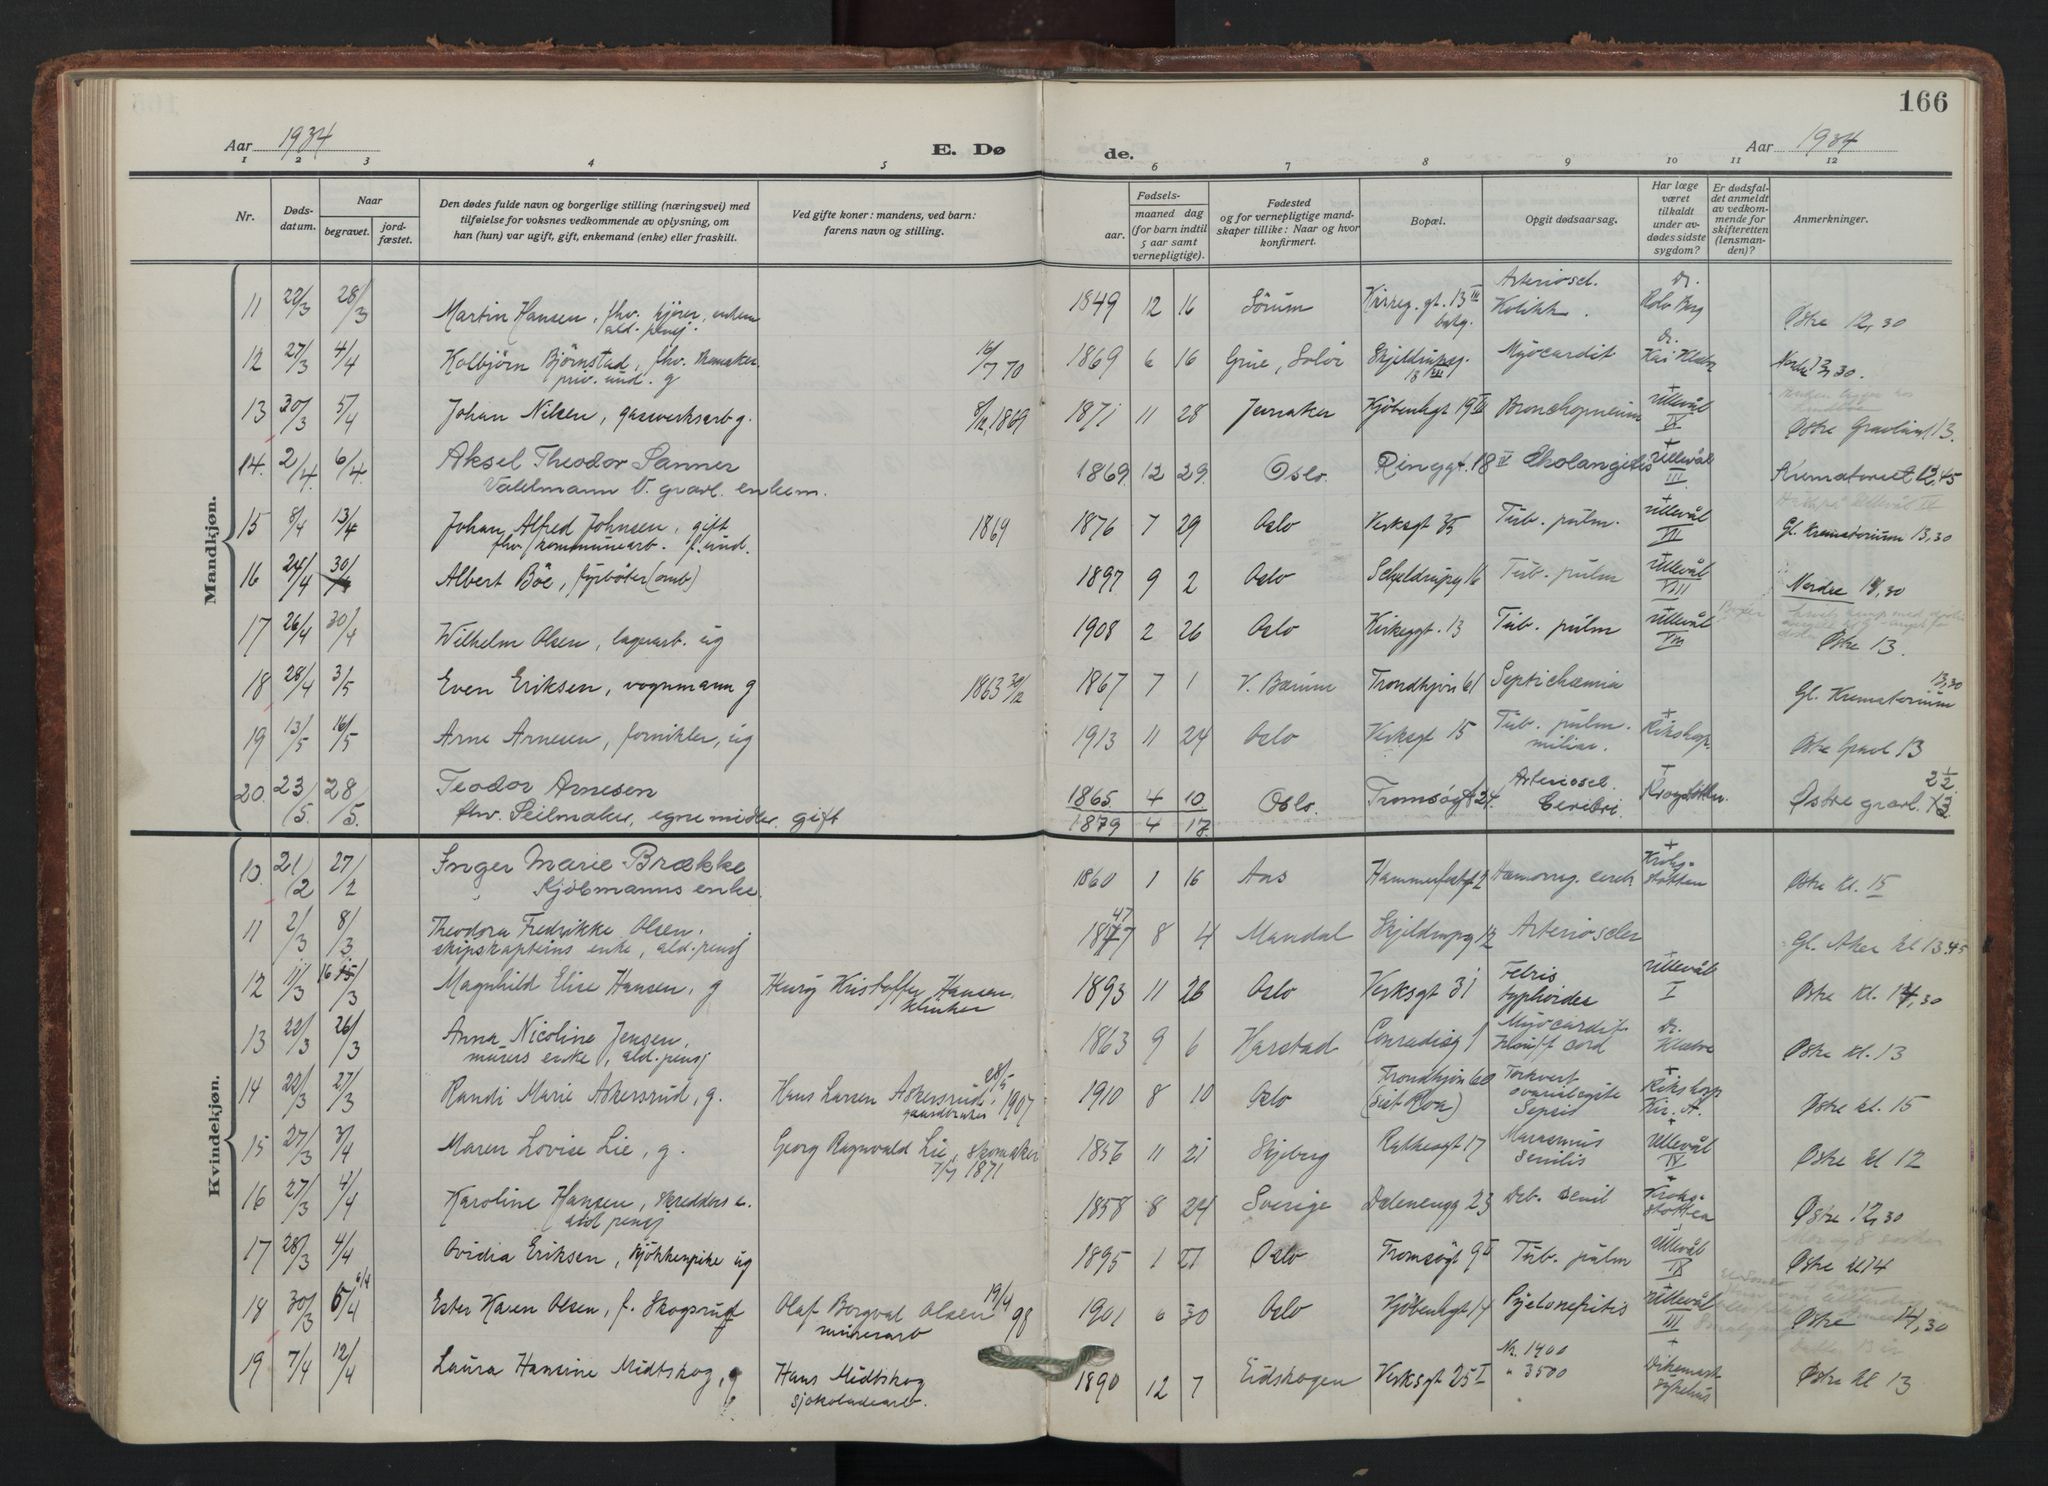 166
Aar 1934
E. Dø
de.
Aar 1934
1 2 3 4 5 6 7 8 9 10 11 12
Nr.
Døds-
datum.
Naar
begravet.
jord-
fæstet.
Den dødes fulde navn og borgerlige stilling (næringsvei) med
tilføielse for voksnes vedkommende av oplysning, om
han (hun) var ugift, gift, enkemand (enke) eller fraskilt.
Ved gifte koner: mandens, ved barn:
farens navn og stilling.
Fødsels-
aar.
maaned dag
(for barn indtil
5 aar samt
vernepligtige).
Fødested
og for vernepligtige mand-
skaper tillike: Naar og hvor
konfirmert.
Bopæl.
Opgit dødsaarsag.
Har læge
været
tilkaldt
under av-
dødes sidste
sygdom?
Er dødsfal-
det anmeldt
av vedkom-
mende for
skifteretten
(lensman-
den)?
Anmerkninger.
Mandkjøn.
11 22/3 28/3 Martin Hansen, fhv. kjører, enkem 1849 12 16 Sørum Kirkeg. gt. 13 III Arterioscl. Dr.
ald. pensj. Kolikk. Rolv Berg Østre 12,30
12 27/3 4/4 Kolbjörn Björnstad, fhv. 16/7 70 1869 6 16 Grue, Solör Skjeldrupsg. Myocardit Dr.
priv. und. g 13 III Kai Nordre 13,30.
13 30/3 5/4 Johan Nilsen, gassverksarb g. 8/12, 1869 1871 11 28 Jevnaker Kjöbenhgt 19 IV Bronchopneum + Ullevål IX Østre Gravlund 13.
14. 2/4. 6/4. Aksel Theodor Sanner 1869. 12 29. Oslo. Ringgt. 18 IV Cholangitis + Ullevål III Krematoriet 12,45
V. gravl. enkem.
15 8/4 13/4 Johan Alfred Johnsen, gift 1869 1876 7 29 Oslo Verksgt 35 Tub. pulm. + Ullevål VII Gl. Krematorium 13,30
fhv. kommunearb. f. und.
16 24/4 30/4 Albert Böe, fyrböter (omb) 1897 9 2 Oslo Schjeldrupsg 16 Tub. pulm + Ullevål VIII Nordre 12,30
17 26/4 30/4 Wilhelm Olsen, lagerarb. ug 1908 2 26 Oslo Kirkeggt. 13 Tub. pulm + Ullevål VIII Østre 13.
18 28/4 3/5 Even Eriksen, vognmann g 1863 30/12 1867 7 1 V. Bærum Trondhjvn 61 Septichæmia Gl. Krematorium 13,30
19 13/5 16/5 Arne Arnesen, fornikler, ug 1913 11 24 Oslo Verksgt 15 Tub. pulm. + Rikshosp. Østre Gravl 13
miliar.
20. 23/5. 28/5. Teodor Arnesen 1865. 4 10 Oslo. Tromsøgt 24. Arterioscl. + Krogstötten. Østre gravl.
fhv. Seilmaker, egne midler. gift 1879 4 17. Cerebri.
Kvindekjøn.
10. 21/2 27/2 Inger Marie Brække 1860 1 16 Aas Hammerfestgt 2 Hæmorrag. cerebr + Krohg-
Kjöbmanns enke. stötten Østre kl. 15
11 2/3 8/3 Theodora Fredrikke Olsen, 1847 8 4 Mandal Skjeldrupsg 12 Arterioscler Gl. Aker kl 13.45
skipskapteins enke, ald. pensj
12 11/3 16/3 Magnhild Elise Hansen, g Henry Kristoffer Hansen, 1893 11 26 Oslo Verksgt 31 Febris + Ullevål
klinker typhoides I Østre kl. 14,30
13 22/3 26/3 Anna Nicoline Jensen, 1863 9 6 Harstad Conradisg 1 Myocardit Dr.
murers enke, ald. pensj insuff. cord Klaeboe Østre kl. 13
14 22/3 27/3 Randi Marie Askersrud, g. Hans Larsen Askersrud, 28/5 1907 1910 8 10 Oslo Trondhjvn 60 Torkvert + Rikshosp
gaardbruker (sist Roa) ovarialcyste Kir. A.
Sepsis Østre kl. 15
15 27/3 3/4 Maren Lovise Lie, g. Georg Ragnvald Lie, skomaker 1856 11 21 Skjeberg Rathkesgt 17 Marasmus + Ullevål
7/7 1871 senilis IV Østre kl 12
16 27/3 4/4 Karoline Hansen, skredders e. 1858 8 24 Sverige Dælenengg 23 Deb. senil + Krohg-
ald pensj stötten Østre 12,30
17 28/3 4/4 Ovidia Eriksen, kjökkenpike ug 1895 1 21 Oslo Tromsøgt 9 II Tub. pulm + Ullevål IX Østre kl 14
18 30/3 6/4 Ester Karen Olsen, f. Skogsrud g Olaf Borgvat Olsen 19/4 98 1901 6 30 Oslo Kjöbenhgt 14 Pyelonefritis + Ullevål III Østre 14,30
murerarb
19 7/4 12/4 Laura Hansine Midtskog, g Hans Midtskog 1890 12 7 Eidskogen Verksgt 25 I Nk. 1400 + Dikemark
sjokoladearb. " 3500 sykehus Østre kl 13